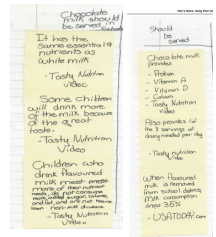 Chocolate
milk should
be served in
Schools
It has the
same essential 9
nutrients as
white milk
- Tasty Nutrition
Video
Some children
will drink more
of the milk because
of the great
taste.
- Tasty Nutrition
Video
Children who
drink flavoured
milk meet
more of their nutrient
needs, do not consume
more added sugar, calories,
and fat, and are not heavier
than non-milk drinkers.
- Tasty Nutrition
Video
Should
be
served
Chocolate milk
provides
- Protien
- Vitamin A
- Vitamin D
- Calcium
- Tasty Nutrition
Video
Also provides 1 of
the 3 servings of
dairy needed per day
- Tasty nutrition
Video
When flavoured
milk is removed
from school districts,
milk consumption
drops 35%
- USATODAY.com